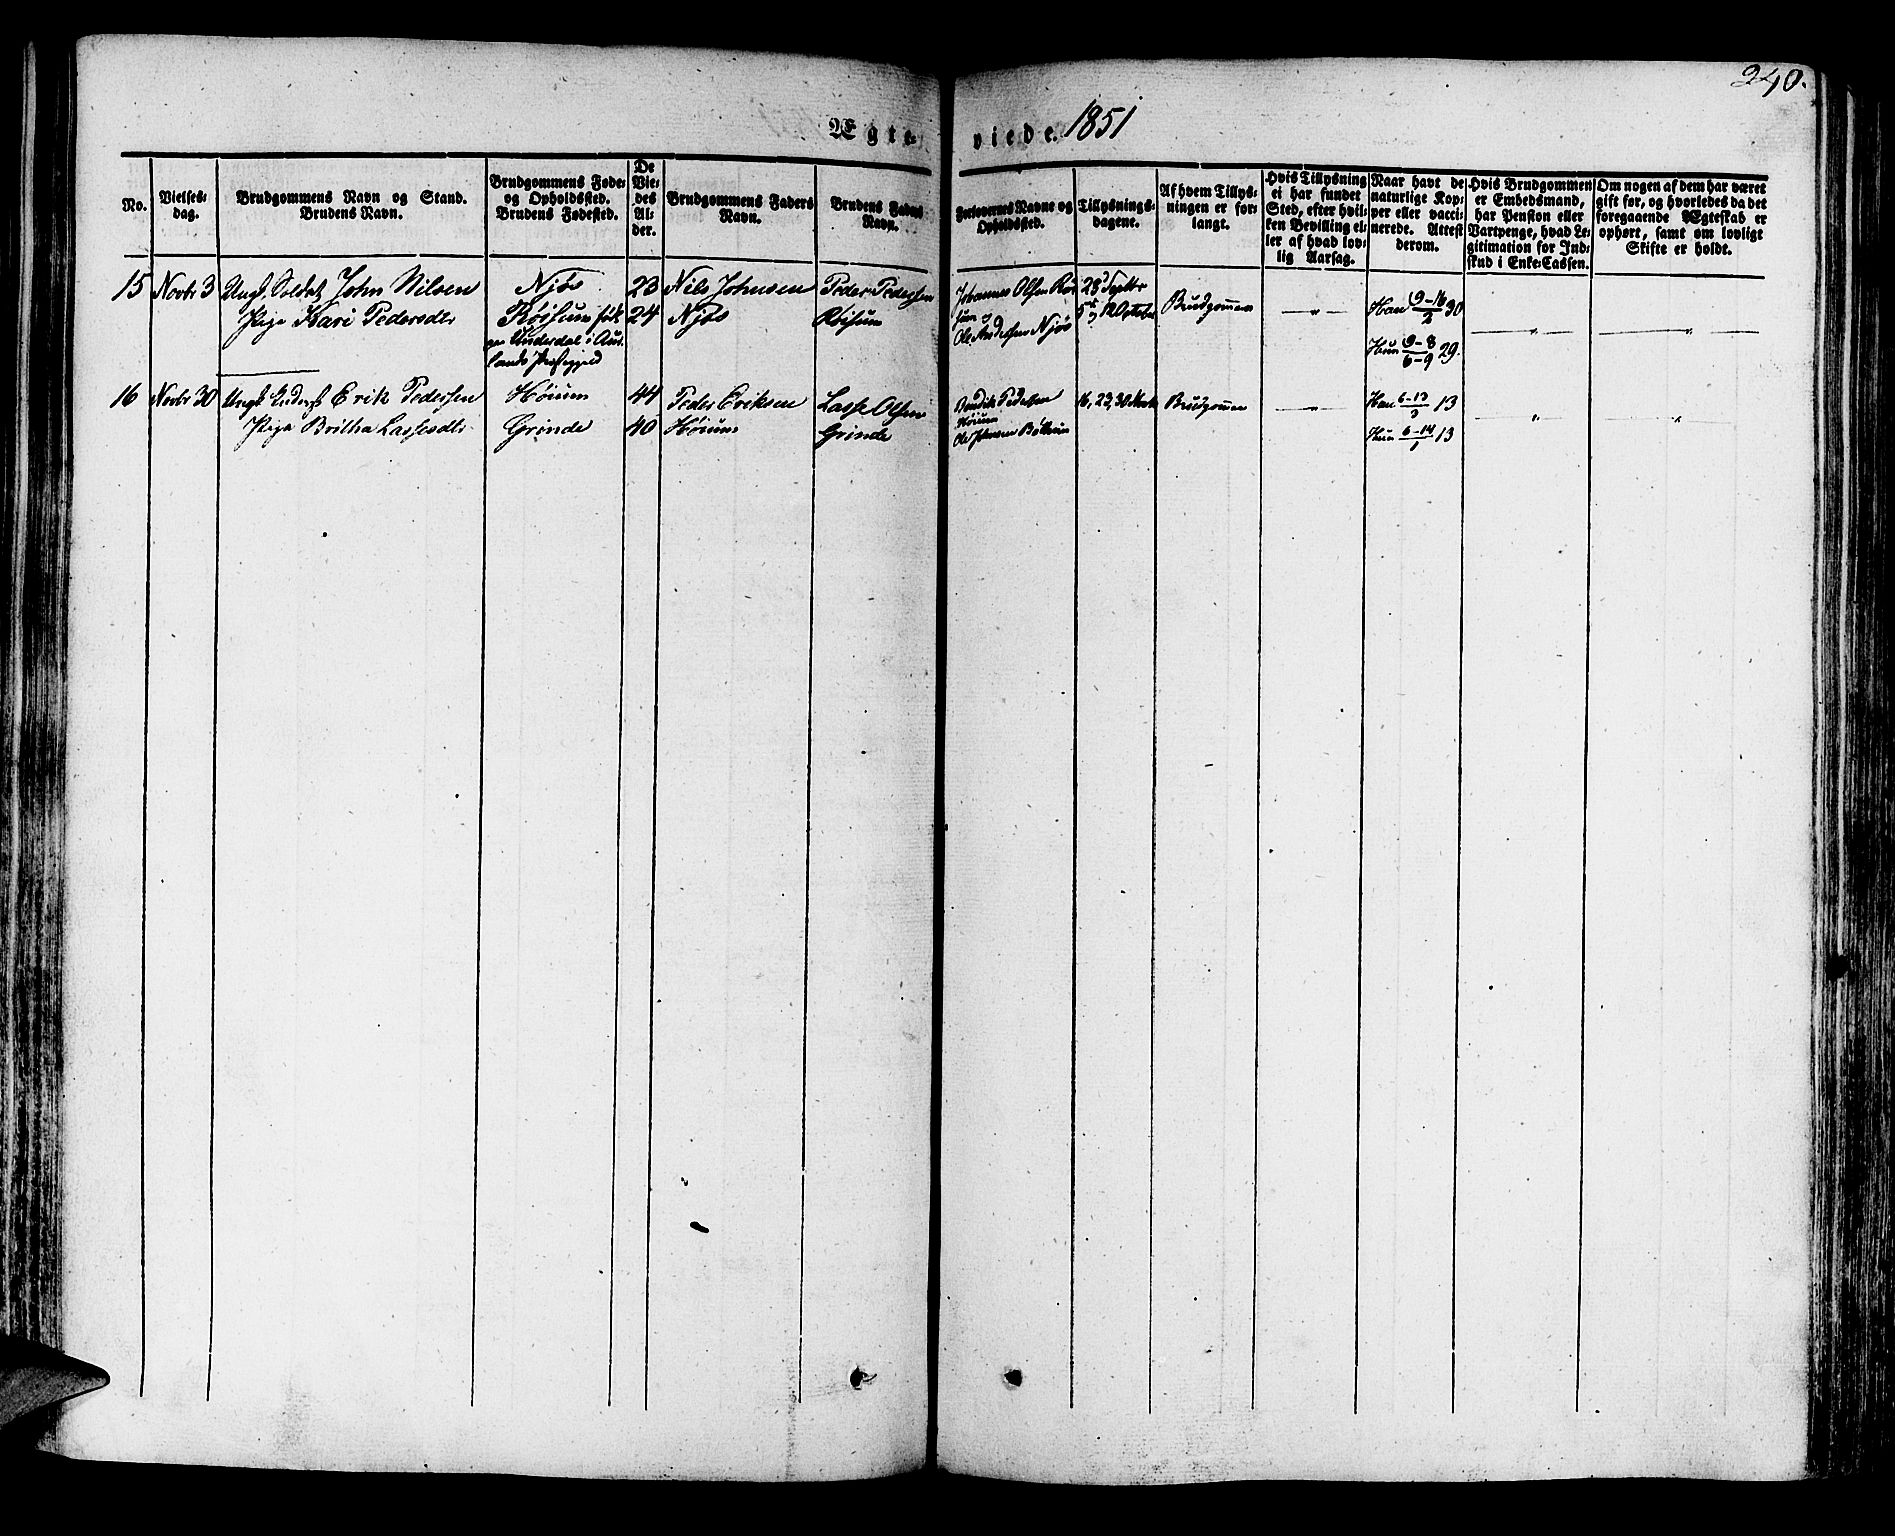 240.
Ægte- viede. 1851
No.
Vielses-
dag.
Brudgommens Navn og Stand.
Brudens Navn.
Brudgommens Føde-
og Opholdssted.
Brudens Fødested.
De
Vie-
des
Al-
der.
Brudgommens Faders
Navn.
Brudens Faders
Navn.
Forlovernes Navne og
Opholdssted.
Tillysnings-
dagene.
Af hvem Tillys-
ningen er for-
langt.
Hvis Tillysning
ei har fundet
Sted, efter hvil-
ken Bevilling el-
ler af hvad lov-
lig Aarsag.
Naar havt de
naturlige Kop-
per eller vacci-
nerede. Attest
derom.
Hvis Brudgommen
er Embedsmand,
har Pension eller
Vartpenge, hvad Le-
gitimation for Ind-
skud i Enke-Cassen.
Om nogen af dem har været
gift før, og hvorledes da det
foregaaende Ægteskab er
ophørt, samt om lovligt
Skifte er holdt.
15 Novbr 3 Ungk. Soldat John Nilsen
Pige Kari Pedersdtr
Njøs
Røisum
Underdal i Aur-
lands Præstegjeld
23
24
Nils Johnsen
Njøs
Peder Pedersen
Røisum
Johannes Olsen Røi
sum og
Ole Andersen Njøs
28 Septbr
5 12 October
Brudgommen
—"—
Han 9-16/2 30
Hun 9-8/6-9 29.
—"—
—"—
16 Novbr 30 Ungk. Erik Pedersen
Pige Britha Lassesdtr
Høium
Grinde
44
40
Peder Eriksen
Høium
Lasse Olsen
Grinde
Bendik Pedersen
Høium
Ole Johnsen
16, 23, 30 Novbr
Brudgommen
—"—
Han 6-13/3 13
Hun 6-14/1 13
"
"